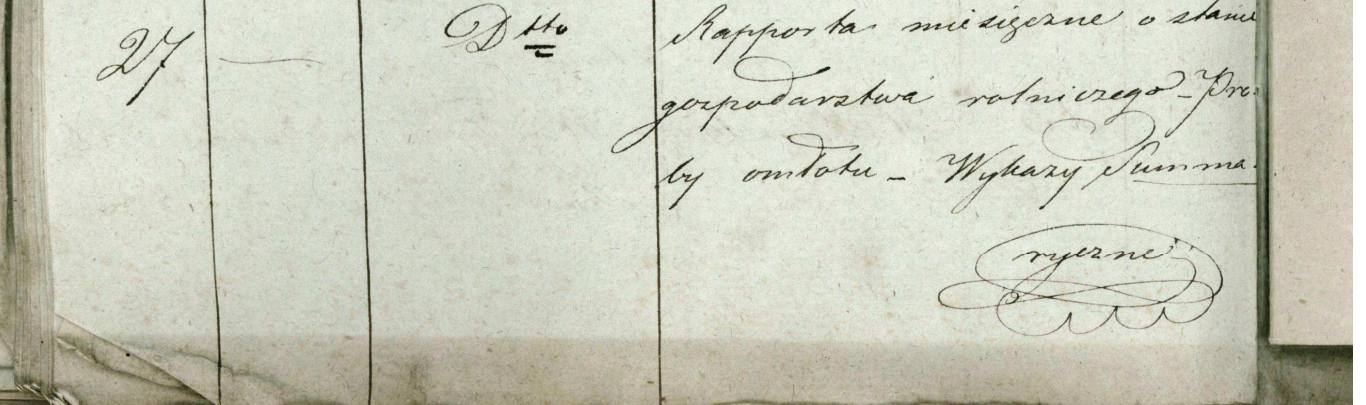 27 — Dtto Rapporta miesięczne o stanie
gospodarstwa rolniczego – Pro-
by omłotu – Wykazy Summa-
ryczne